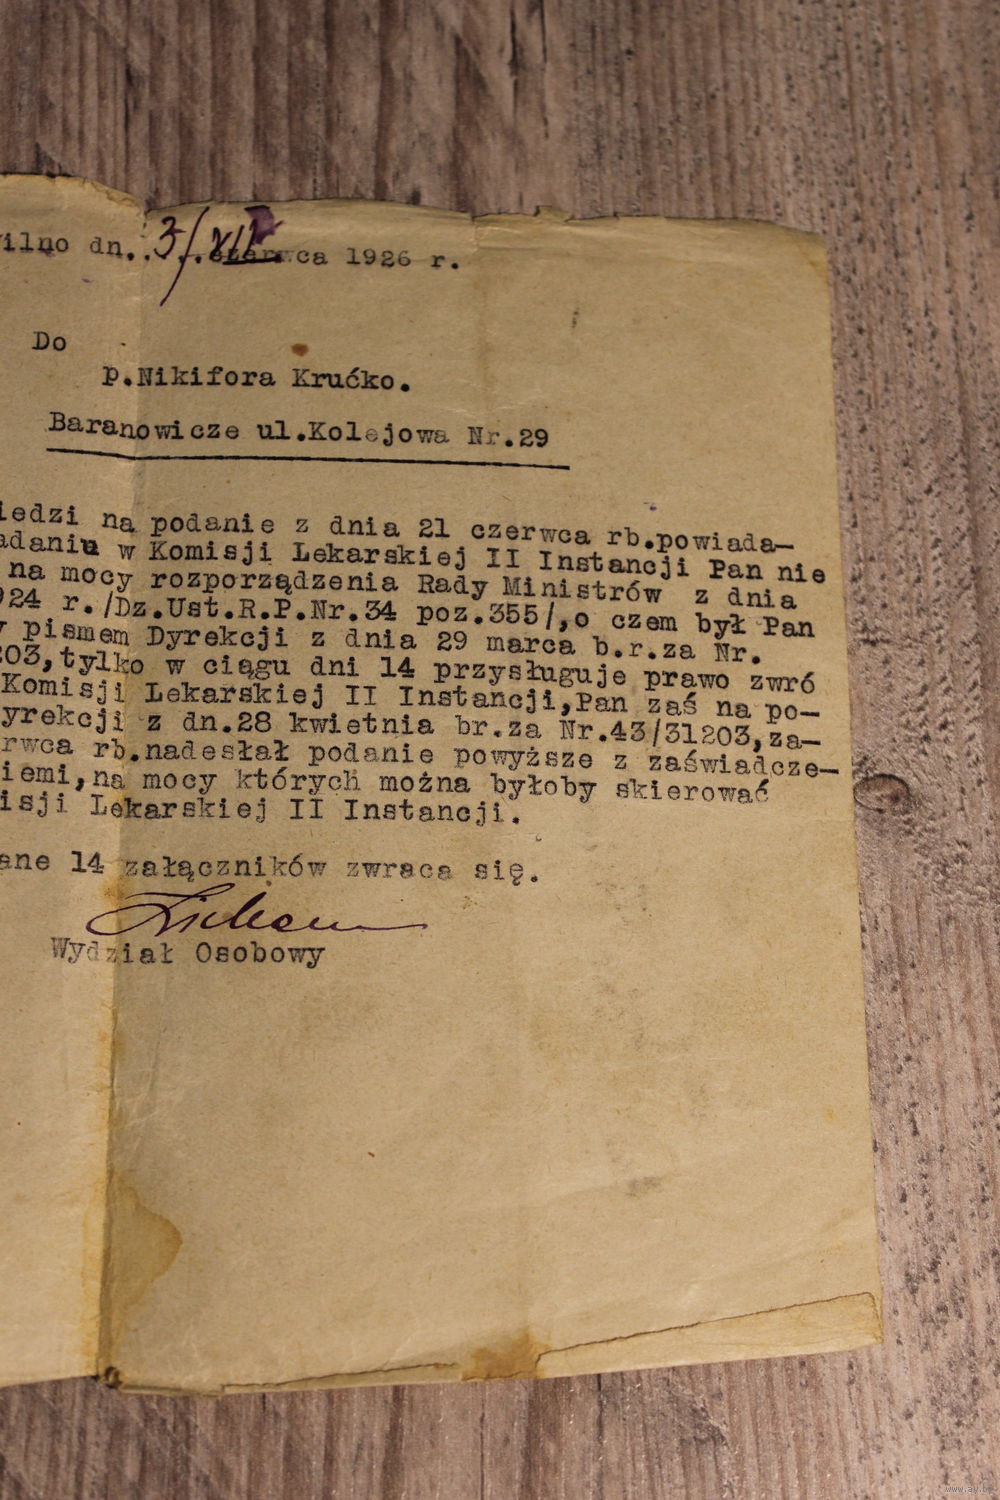 ilno dn. 3/XII czerwca 1926 r.
Do
p.Nikifora Krućko.
Baranowicze ul.Kolejowa Nr.29
iedzi na podanie z dnia 21 czerwca rb.powiada-
adaniu w Komisji Lekarskiej II Instancji Pan nie
na mocy rozporządzenia Rady Ministrów z dnia
924 r./Dz.Ust.R.P.Nr.34 poz.355/,o czem był Pan
pismem Dyrekcji z dnia 29 marca b.r.za Nr.
203,tylko w ciągu dni 14 przysługuje prawo zwró
Komisji Lekarskiej II Instancji,Pan zaś na po-
yrekcji z dn.28 kwietnia br.za Nr.43/31203,za-
rwca rb.nadesłał podanie powyższe z zaświadcze-
iemi,na mocy których można byłoby skierować
isji Lekarskiej II Instancji.
ane 14 załączników zwraca się.
Wydział Osobowy